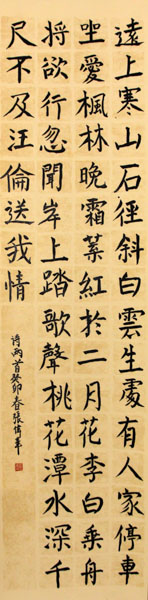 遠上寒山石徑斜白雲生處有人家停車
坐愛楓林晚霜葉紅於二月花李白乘舟
将欲行忽聞岸上踏歌聲桃花潭水深千
尺不及汪倫送我情
詩兩首癸卯春張偉